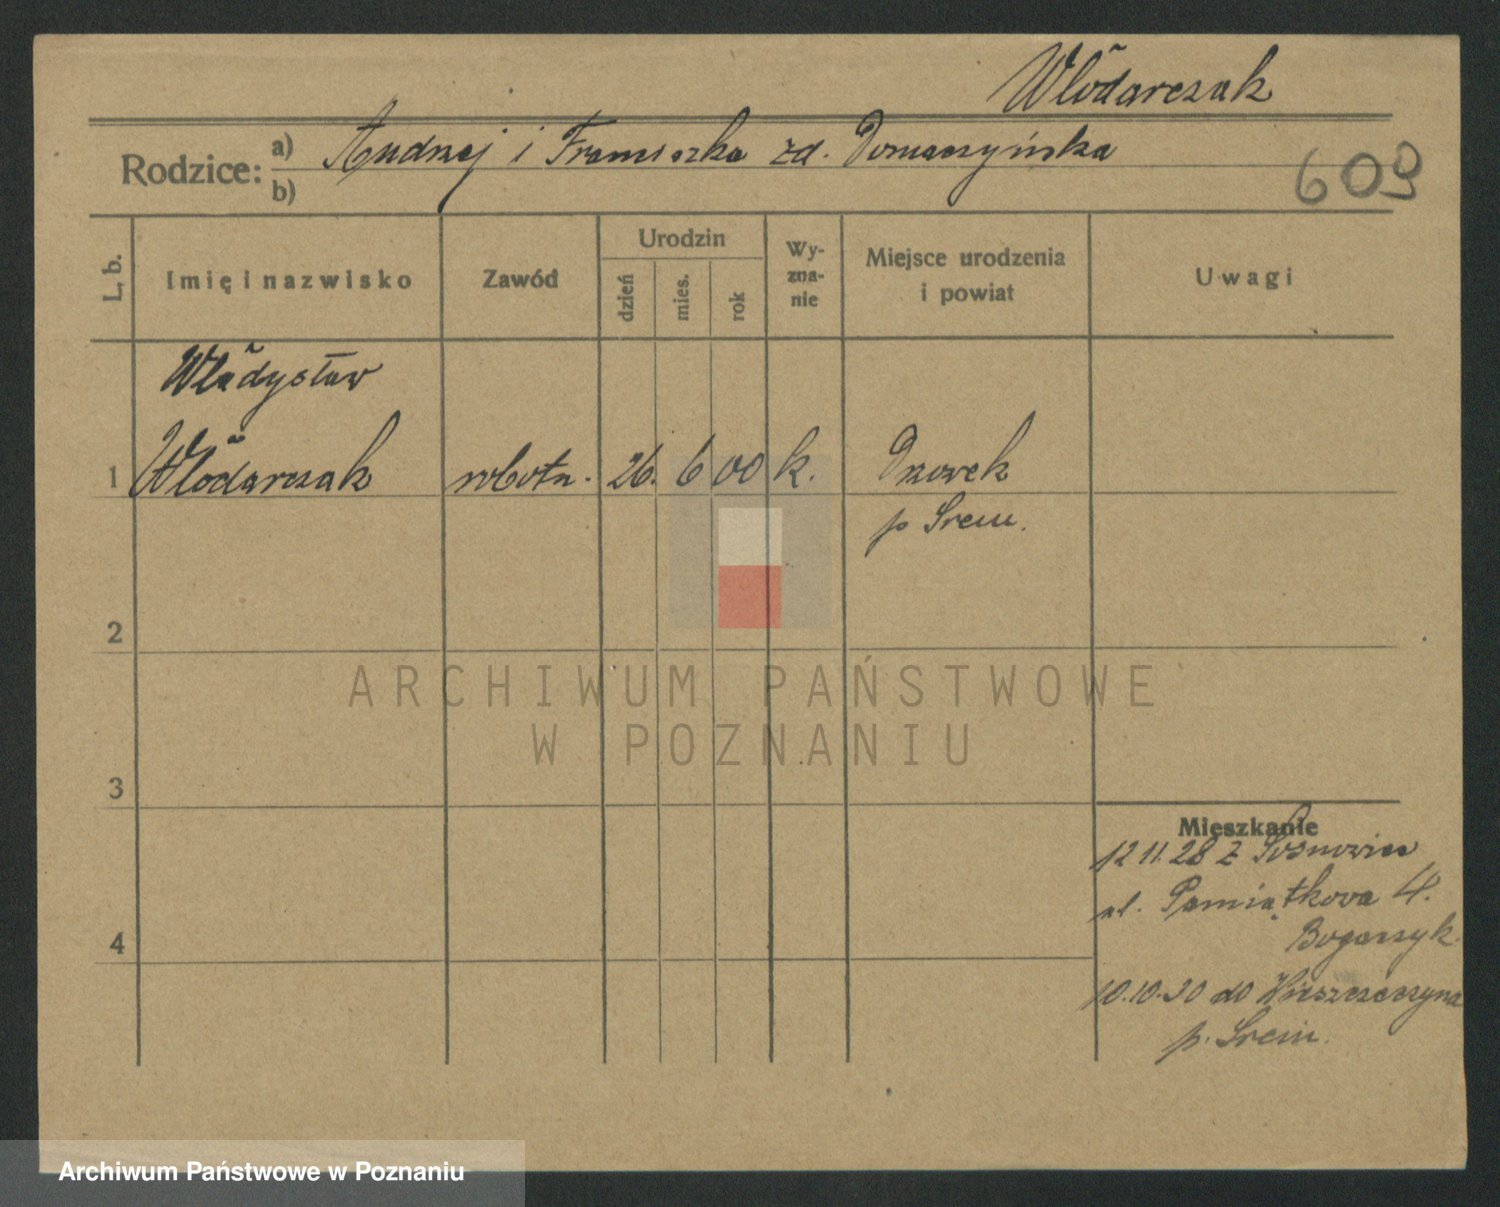 Włodarczak
Rodzice: a) Andrzej i Franciszka zd. Domaczyńska
b)
609
L. b.
Imię i nazwisko
Zawód
Urodzin
dzień
mies.
rok
Wy-
zna-
nie
Miejsce urodzenia
i powiat
Uwagi
Władysław
1 Włodarczak robotn. 26. 6 00 k.
p Śrem.
2
3
4
ARCHIWUM PAŃSTWOWE
W POZNANIU
Mieszkanie
12 11. 28 z Sosnowiec
ul. Pamiątkowa 4.
10.10.30 do
p. Śrem.
Archiwum Państwowe w Poznaniu